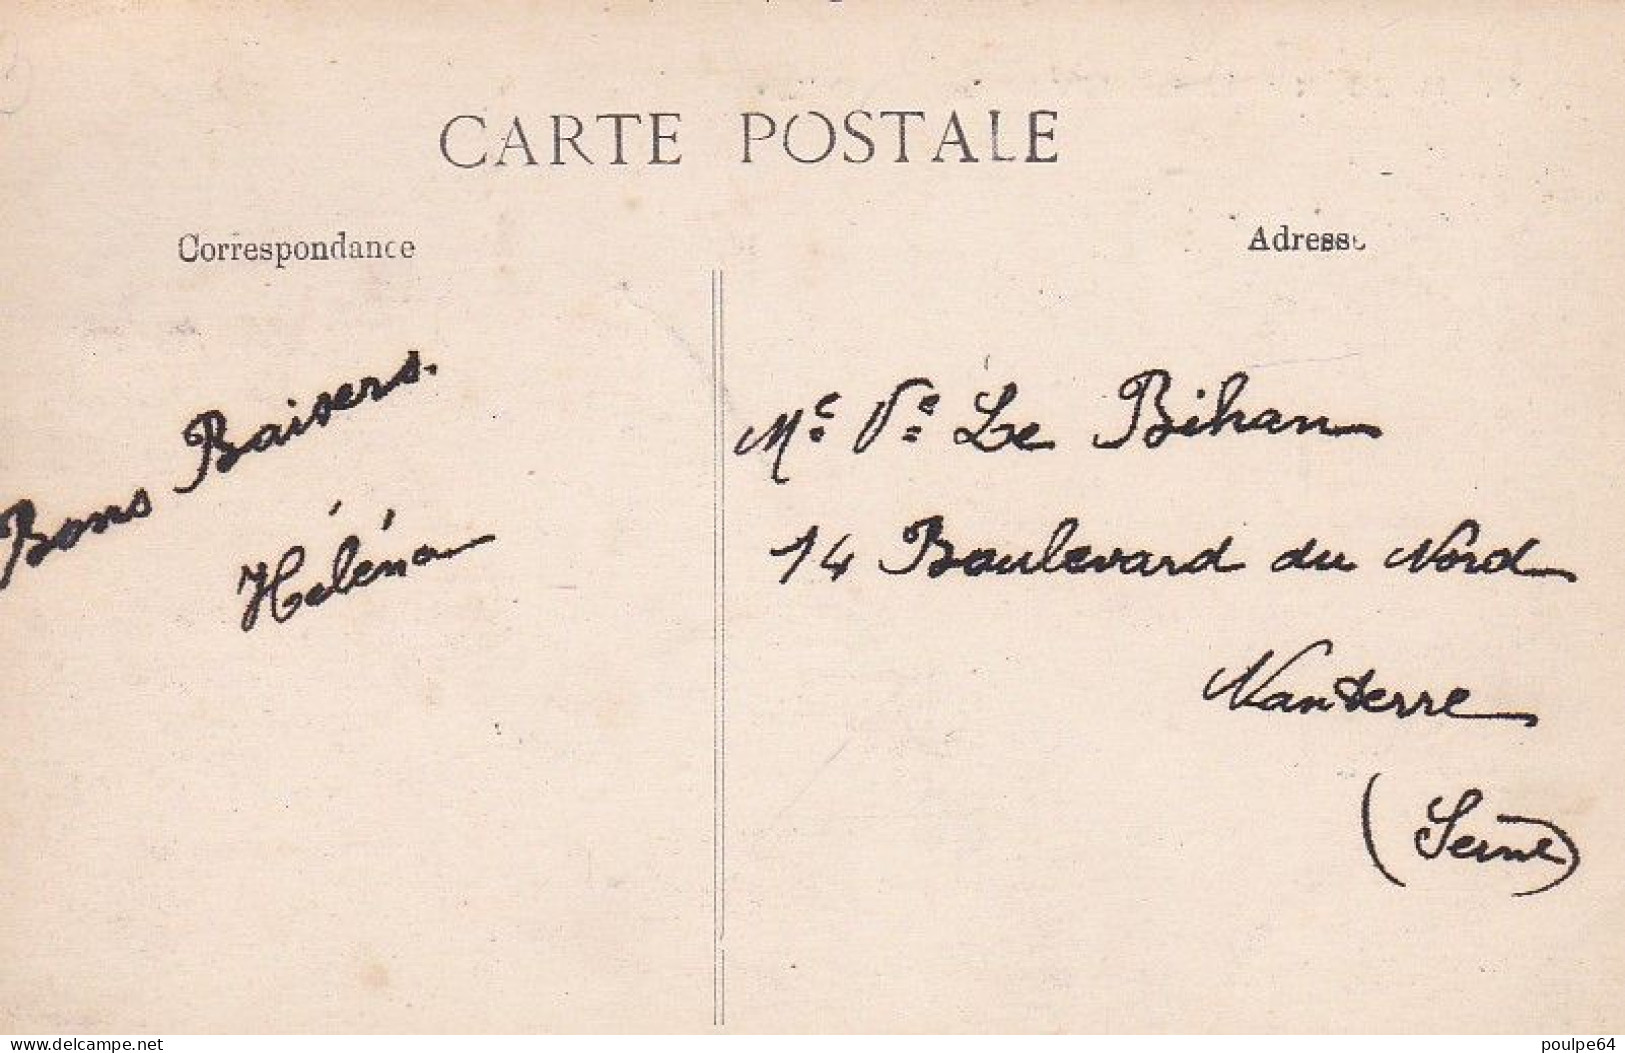 CARTE POSTALE
Correspondance
Adresse
Bons Baisers.
Héléna
Me Ve Le Bihan
14 Boulevard du Nord
Nanterre
(Seine)
www.delcampe.net
poulpe64